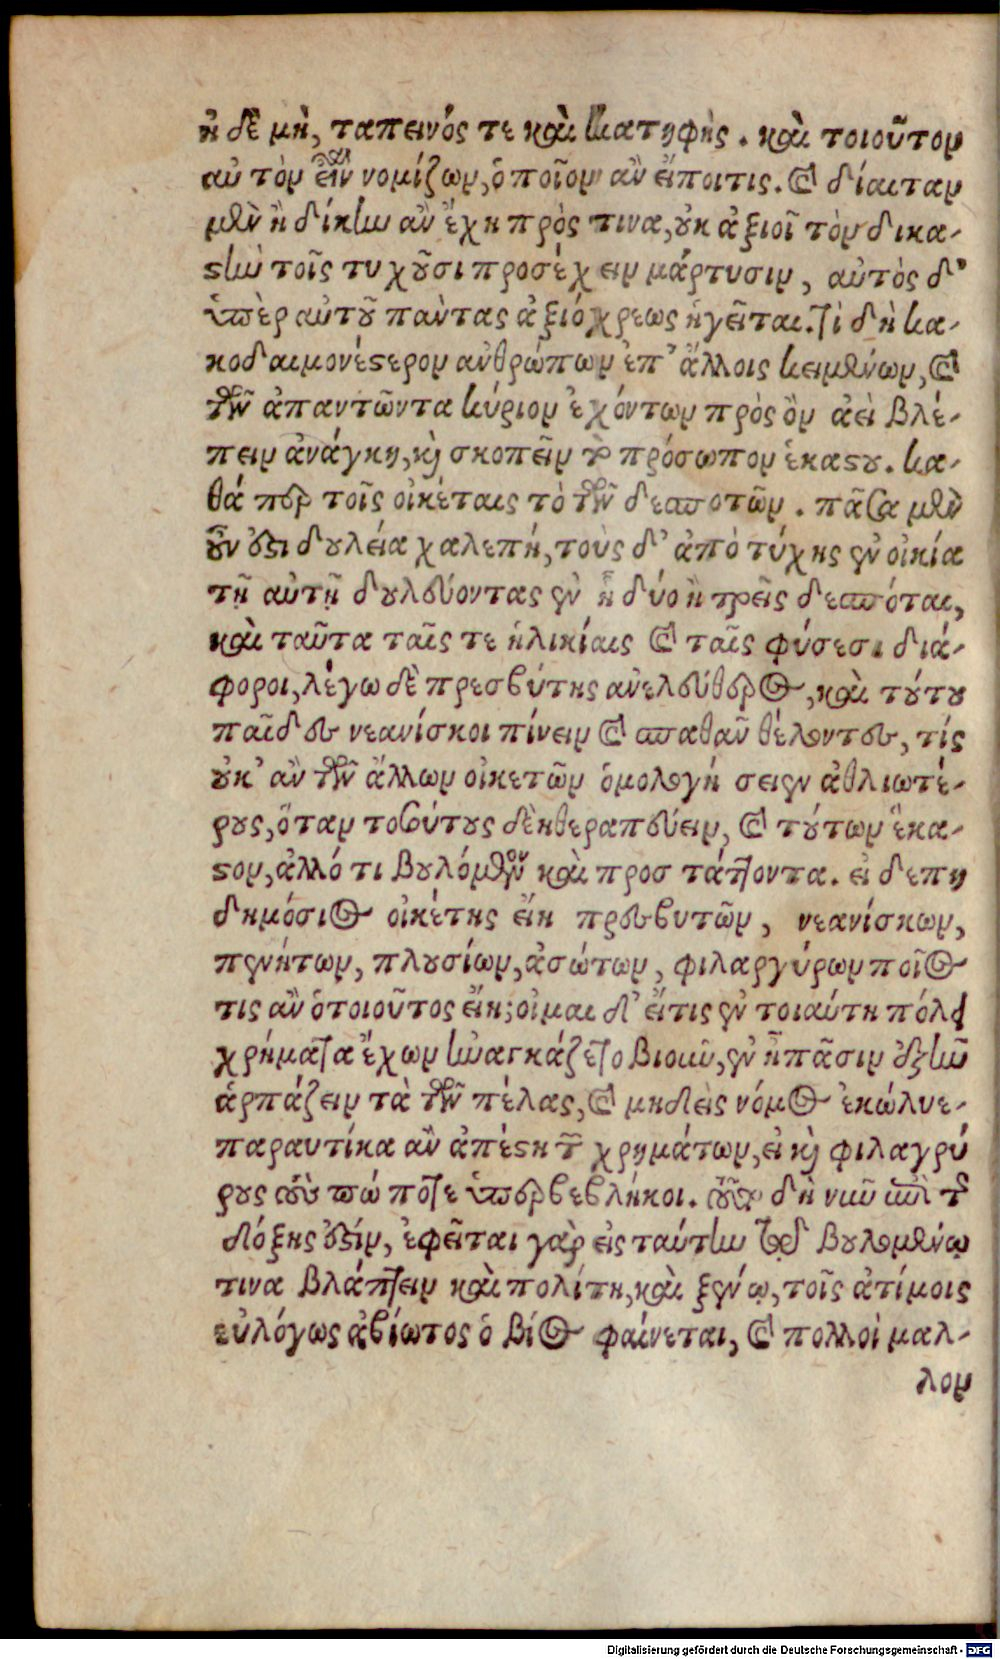 ἢ δὲ μὴ, ταπεινός τε καὶ κατηφὴς. καὶ τοιοῦτον
αὐτὸν εἶναι νομίζων, ὁποῖον ἂν εἴποι τις. καὶ δίαιταν
μὲν ἢ δίκην ἂν ἔχη πρὸς τινα, οὐκ ἀξιοῖ τὸν δικα-
στὴν τοῖς τυχοῦσι προσέχειν μάρτυσιν, αὐτὸς δ'
ὑπὲρ αὐτοῦ πάντας ἀξιόχρεως ἡγεῖται. Τί δὴ κα-
κοδαιμονέστερον ἀνθρώπων ἐπ' ἄλλοις κειμένων, καὶ
τῶν ἀπαντῶντα κύριον ἐχόντων πρὸς ὃν ἀεὶ βλέ-
πειν ἀνάγκη, καὶ σκοπεῖν τὸ πρόσωπον ἑκάστου. κα-
θάπερ τοῖς οἰκέταις τὸ τῶν δεσποτῶν. πᾶσα μὲν
οὖν ἐστι δουλεία χαλεπή, τοὺς δ' ἀπὸ τύχης ἐν οἰκία
τῇ αὐτῇ δουλεύοντας ἐν ᾗ δύο ἢ τρεῖς δεσπόται,
καὶ ταῦτα ταῖς τε ἡλικίαις καὶ ταῖς φύσεσι διά-
φοροι, λέγω δὲ πρεσβύτης ἀνελεύθερος, καὶ τούτου
παῖδες νεανίσκοι πίνειν καὶ σπαθᾶν θέλοντες, τίς
οὐκ' ἂν τῶν ἄλλων οἰκετῶν ὁμολογήσειεν ἀθλιωτέ-
ρους, ὅταν τοσούτους δέη θεραπεύειν, καὶ τούτων ἕκα-
στον, ἀλλό τι βουλόμενον καὶ προστάττοντα. εἰ δέ πη
δημόσιος οἰκέτης εἴη πρεσβυτῶν, νεανίσκων,
πενήτων, πλουσίων, ἀσώτων, φιλαργύρων ποῖος
τις ἂν ὁ τοιοῦτος εἴη; οἶμαι δ' εἴ τις ἐν τοιαύτη πόλει
χρήματα ἔχων ἠναγκάζετο βιοῦν, ἐν ᾗ πᾶσιν ἐξῆν
ἁρπάζειν τὰ τῶν πέλας, καὶ μηδεὶς νόμος ἐκώλυε-
παραυτίκα ἂν ἀπέστη τῶν χρημάτων, εἰ καὶ φιλαγρύ
ρους τοὺς πώποτε ὑπερβεβλήκοι. τοῦτο δὴ νῦν ἐπὶ τῆς
δόξης ἐστίν, ἐφεῖται γὰρ εἰς ταύτην τῷ βουλομένῳ
τινα βλάπτειν καὶ πολίτη, καὶ ξένῳ, τοῖς ἀτίμοις
εὐλόγως ἀβίωτος ὁ βίος φαίνεται, καὶ πολλοὶ μαλ-
λον
Digitalisierung gefördert durch die Deutsche Forschungsgemeinschaft - DFG